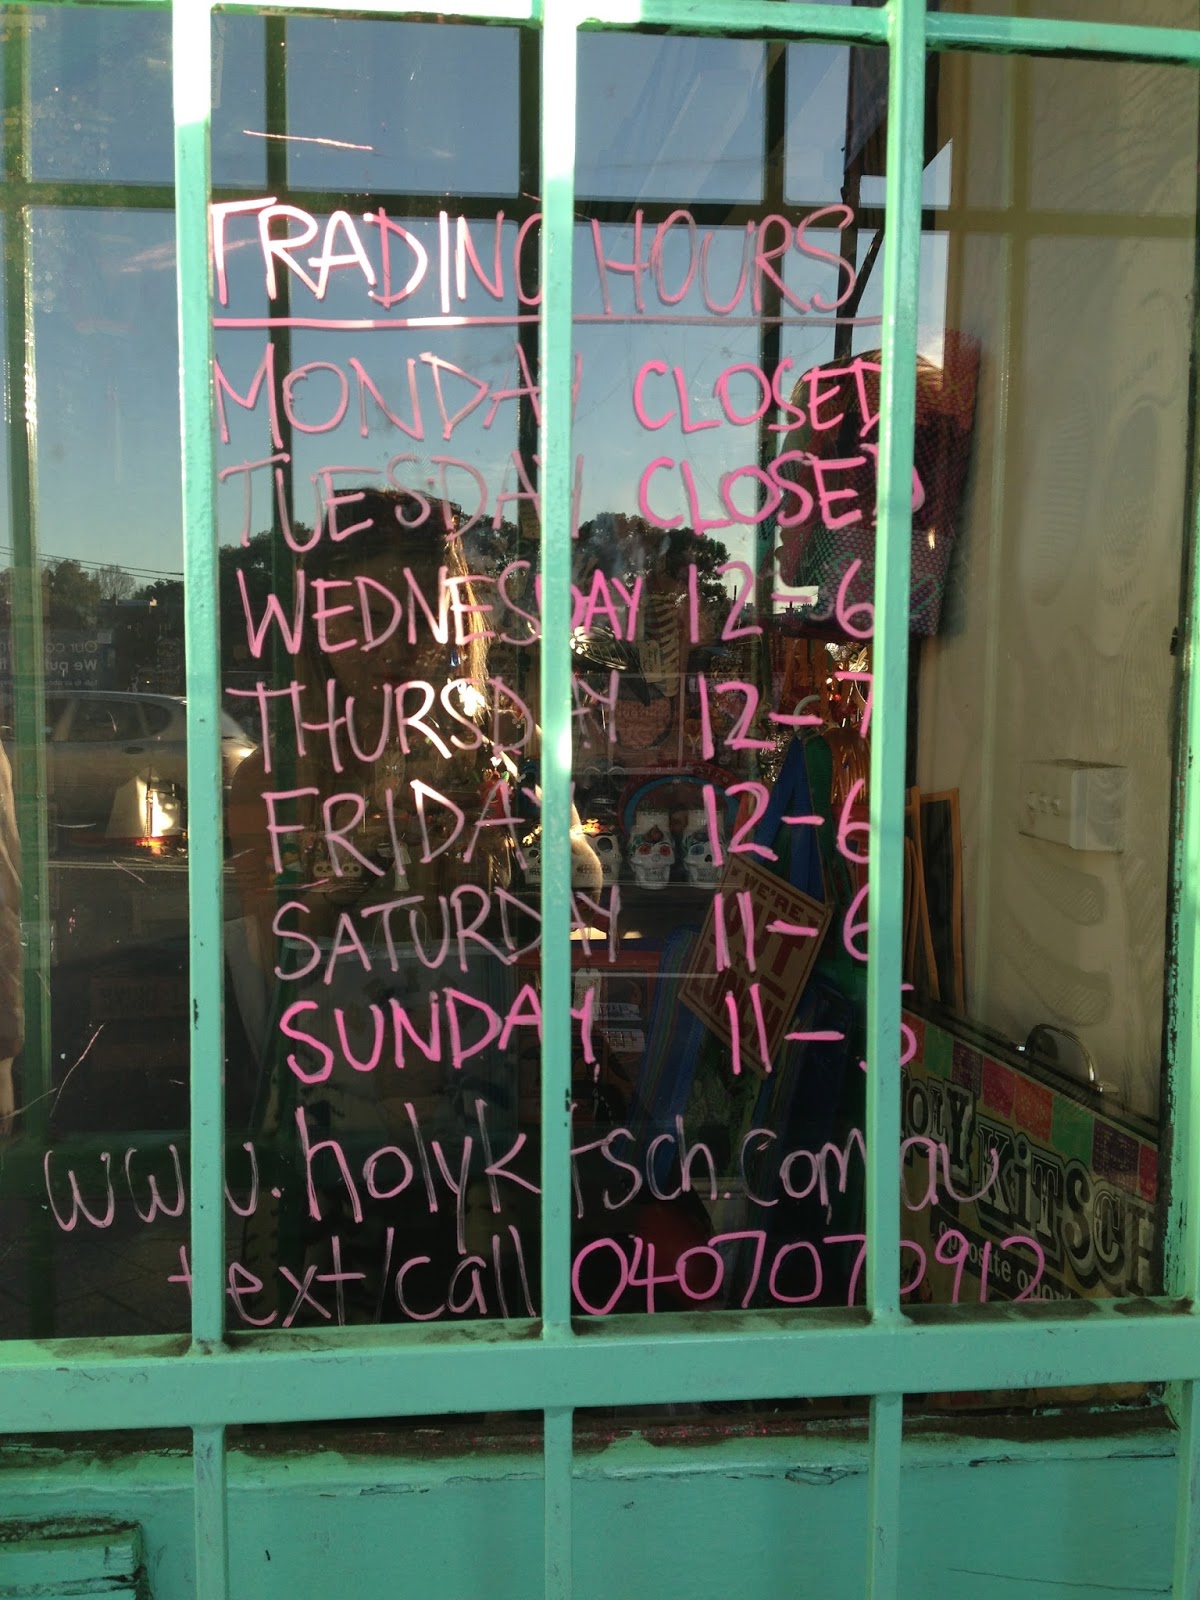 TRADING HOURS
MONDAY CLOSED
TUESDAY CLOSED
WEDNESDAY 12-6
THURSDAY 12-7
FRIDAY 12-6
SATURDAY 11-6
SUNDAY 11-5
www.holykitsch.com.au
text/call 0407070912
WE'RE
OUT
LUNCH
HOLY KiTSCH
opposite